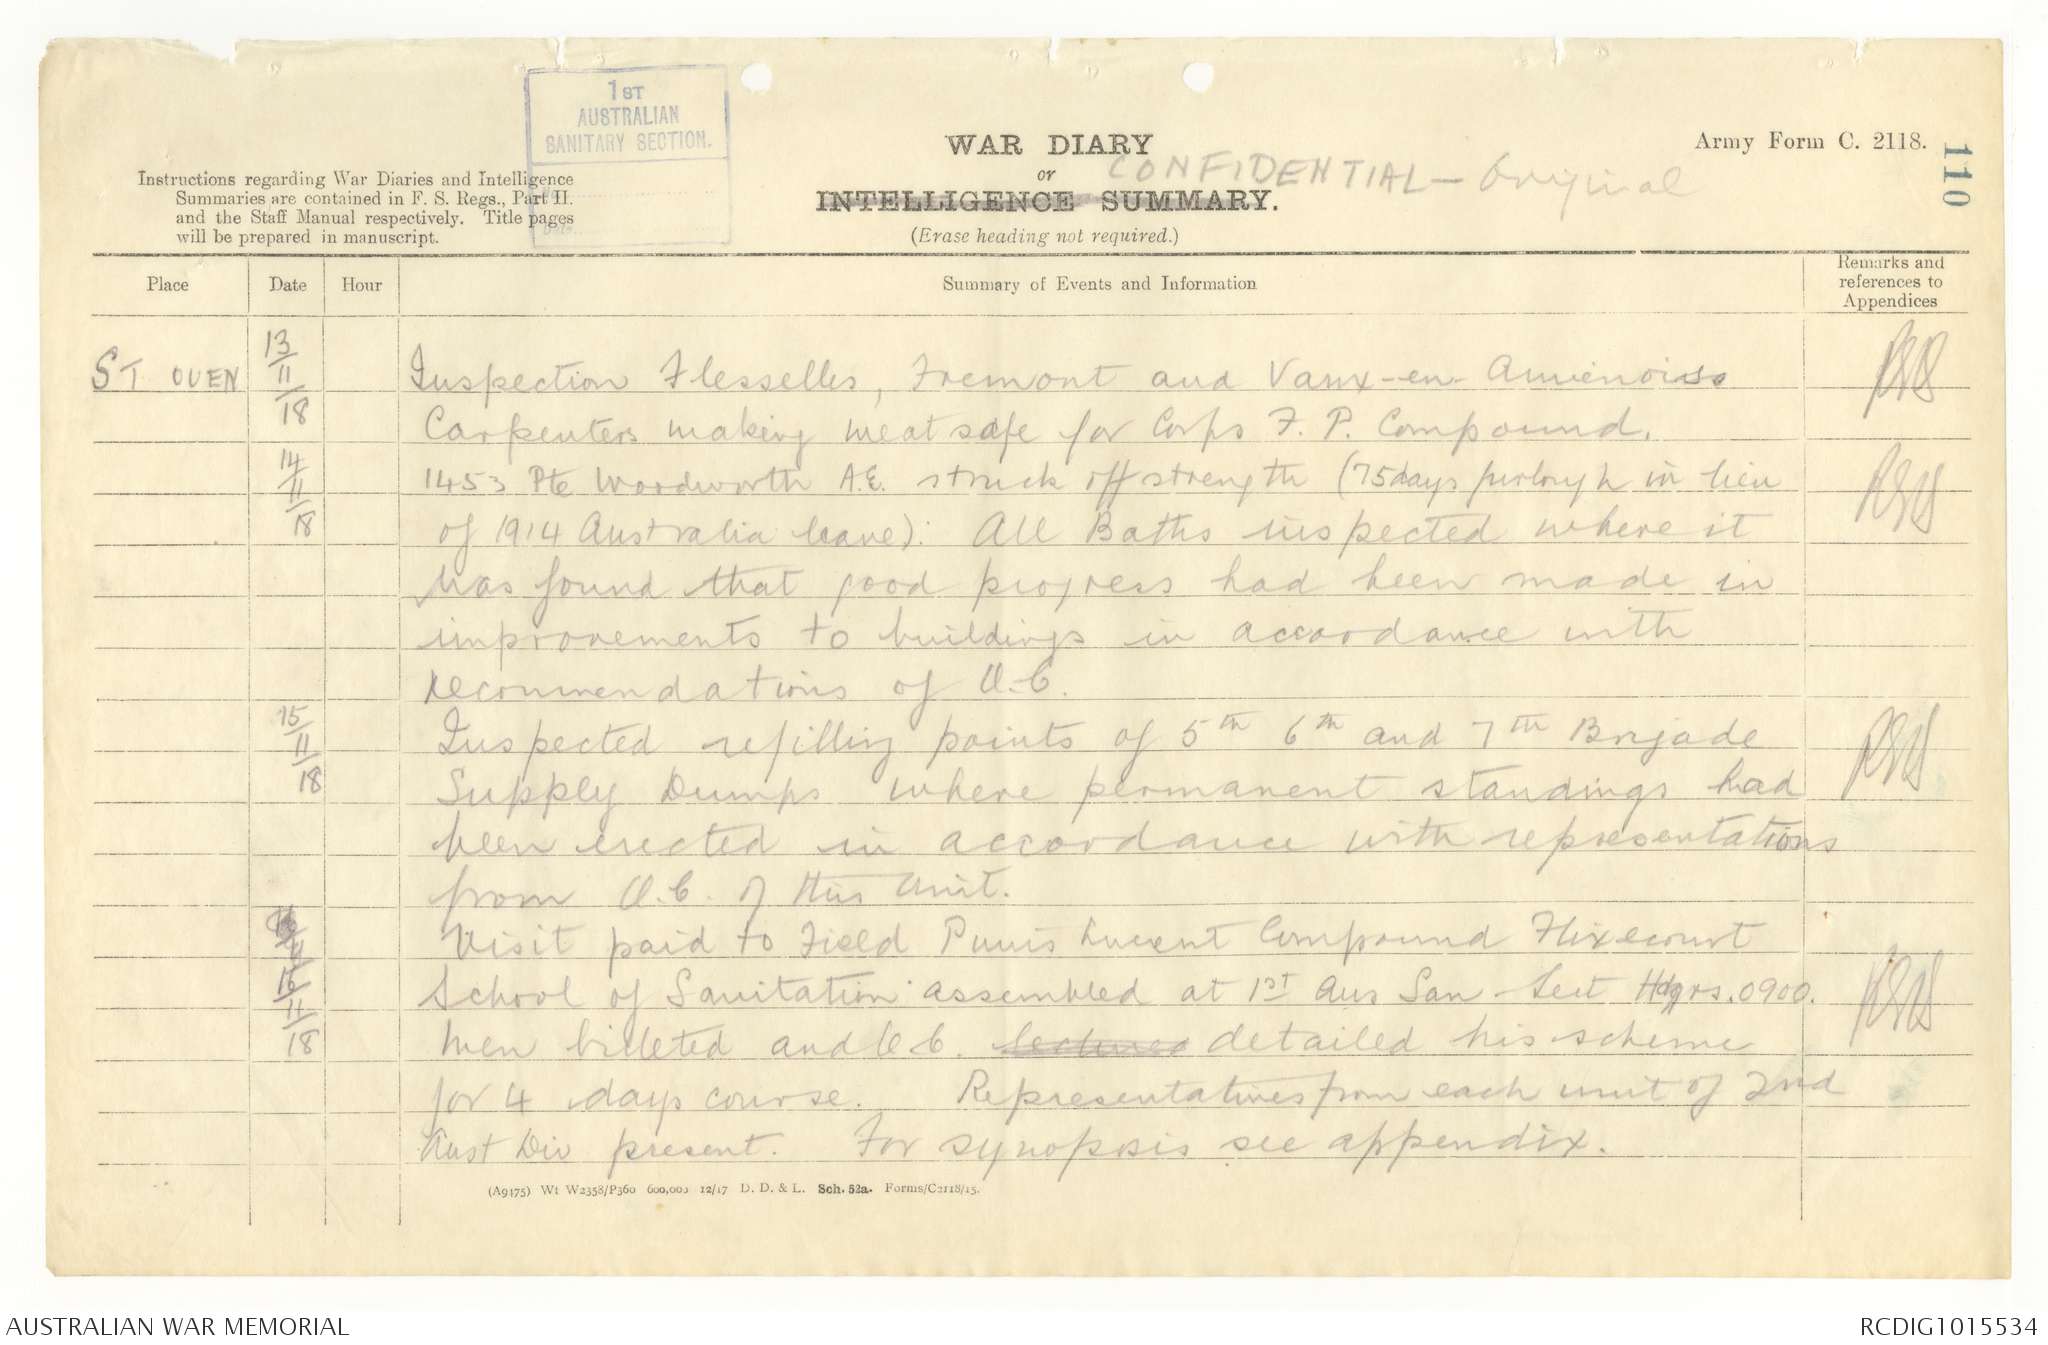 1ST
AUSTRALIAN
SANITARY SECTION.
WAR DIARY
or
INTELLIGENCE SUMMARY.
(Erase heading not required.)
CONFIDENTIAL - Original
Army Form C. 2118.
110
Instructions regarding War Diaries and Intelligence
Summaries are contained in F. S. Regs., Part II.
and the Staff Manual respectively. Title pages
will be prepared in manuscript.
Place Date Hour Summary of Events and Information Remarks and references to Appendices
ST OUEN 13/11/18 Inspection Flesselles, Fremont and Vaux-en-Amienois
Carpenters making meat safe for Corps F. P. Compound.
14/11/18 1453 Pte Woodworth A.E. struck off strength (75 days furlough in lieu
of 1914 Australia leave). All Baths inspected where it
was found that good progress had been made in
improvements to buildings in accordance with
recommendations of O.C.
15/11/18 Inspected refilling points of 5th 6th and 7th Brigade
Supply Dumps where permanent standings had
been erected in accordance with representations
from O.C. of this Unit.
16/11/18 Visit paid to Field Punishment Compound Flixecourt
School of Sanitation assembled at 1st Aus San Sect Hdqrs. 0900.
Men billeted and O.C. lectured detailed his scheme
for 4 days course. Representatives from each unit of 2nd
Aust Div present. For synopsis see appendix.
(A9475) Wt W2358/P360 600,000 12/17 D. D. & L. Sch. 52a. Forms/C2118/15.
AUSTRALIAN WAR MEMORIAL
RCDIG1015534